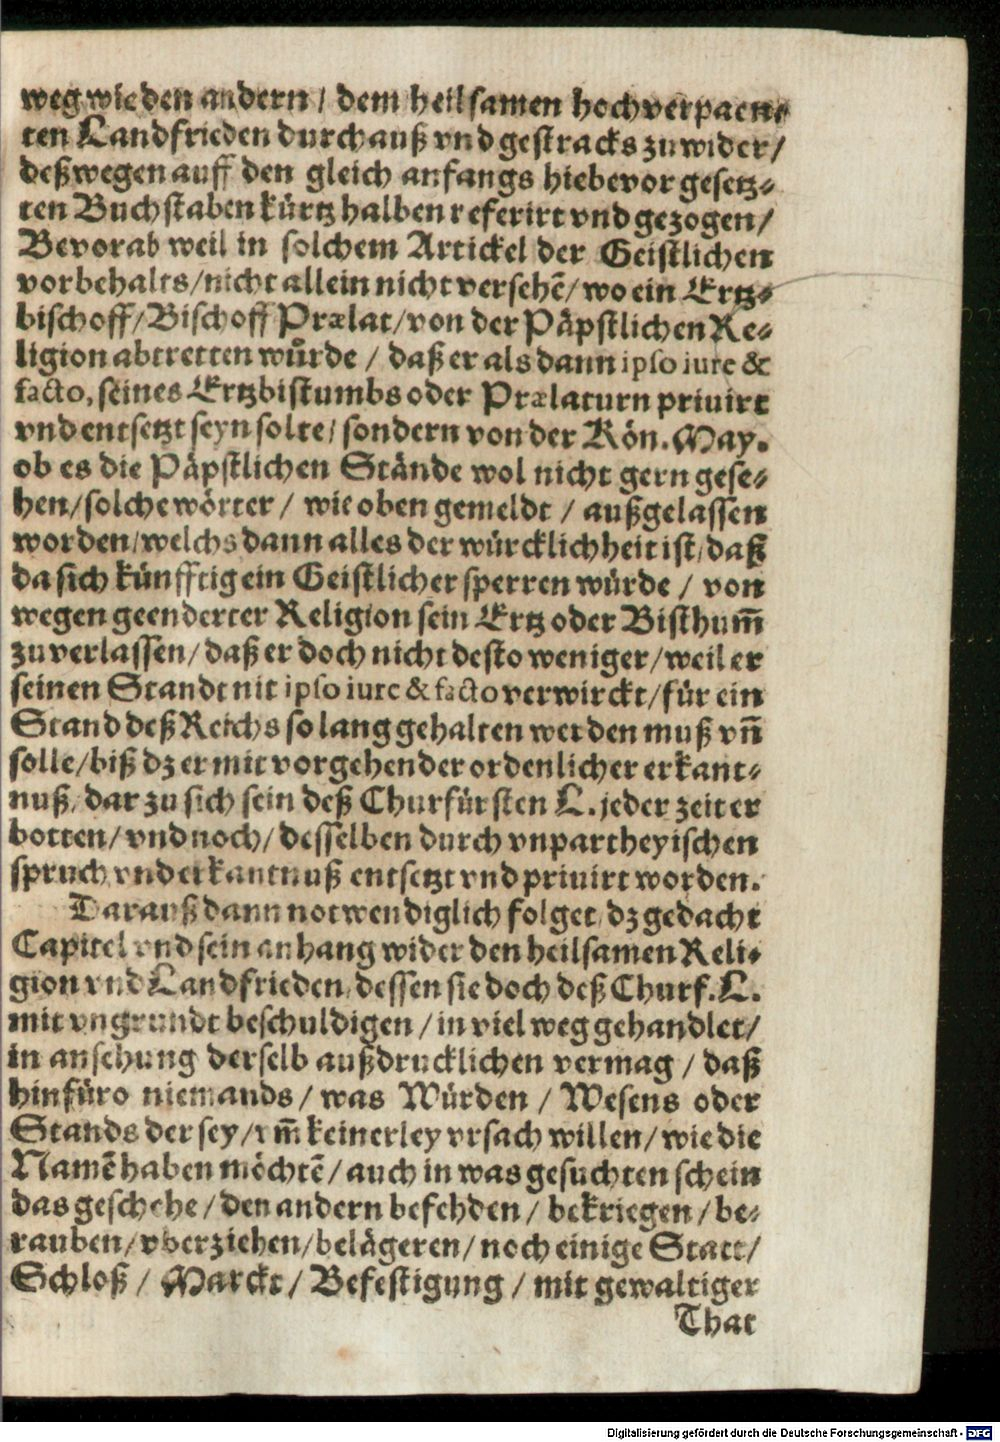 weg wie den andern / dem heilsamen hochverpaene
ten Landfrieden durchauß vnd gestracks zuwider /
deßwegen auff den gleich anfangs hiebevor gesetz⸗
ten Buchstaben kürtz halben referirt vnd gezogen /
Bevorab weil in solchem Artickel der Geistlichen
vorbehalts / nicht allein nicht versehē / wo ein Ertz⸗
bischoff / Bischoff Prælat / von der Päpstlichen Re⸗
ligion abtretten wuͤrde / daß er als dann ipso iure &
facto, seines Ertzbistumbs oder Prælaturn priuirt
vnd entsetzt seyn solte / sondern von der Kön. May.
ob es die Päpstlichen Stände wol nicht gern gese⸗
hen / solche wörter / wie oben gemeldt / außgelassen
worden / welchs dann alles der würcklichheit ist / daß
da sich künfftig ein Geistlicher sperren würde / von
wegen geenderter Religion sein Ertz oder Bisthum̄
zuverlassen / daß er doch nicht desto weniger / weil er
seinen Standt nit ipso iure & facto verwirckt / für ein
Stand deß Reichs so lang gehalten werden muß vn̄
solle / biß dz er mit vorgehender ordenlicher erkant⸗
nuß / darzu sich sein deß Churfürsten L. jeder zeit er
botten / vnd noch / desselben durch vnpartheyischen
spruch vnd erkantnuß entsetzt vnd priuirt worden.
Darauß dann notwendiglich folget / dz gedacht
Capitel vnd sein anhang wider den heilsamen Reli⸗
gion vnd Landfrieden / dessen sie doch deß Churf. L.
mit vngrundt beschuldigen / in viel weg gehandlet /
in ansehung derselb außdrucklichen vermag / daß
hinfüro niemands / was Würden / Wesens oder
Stands der sey / vm̄ keinerley vrsach willen / wie die
Namē haben möchtē / auch in was gesuchten schein
das geschehe / den andern befehden / bekriegen / be⸗
rauben / vberziehen / belägeren / noch einige Statt /
Schloß / Marckt / Befestigung / mit gewaltiger
That
Digitalisierung gefördert durch die Deutsche Forschungsgemeinschaft - DFG